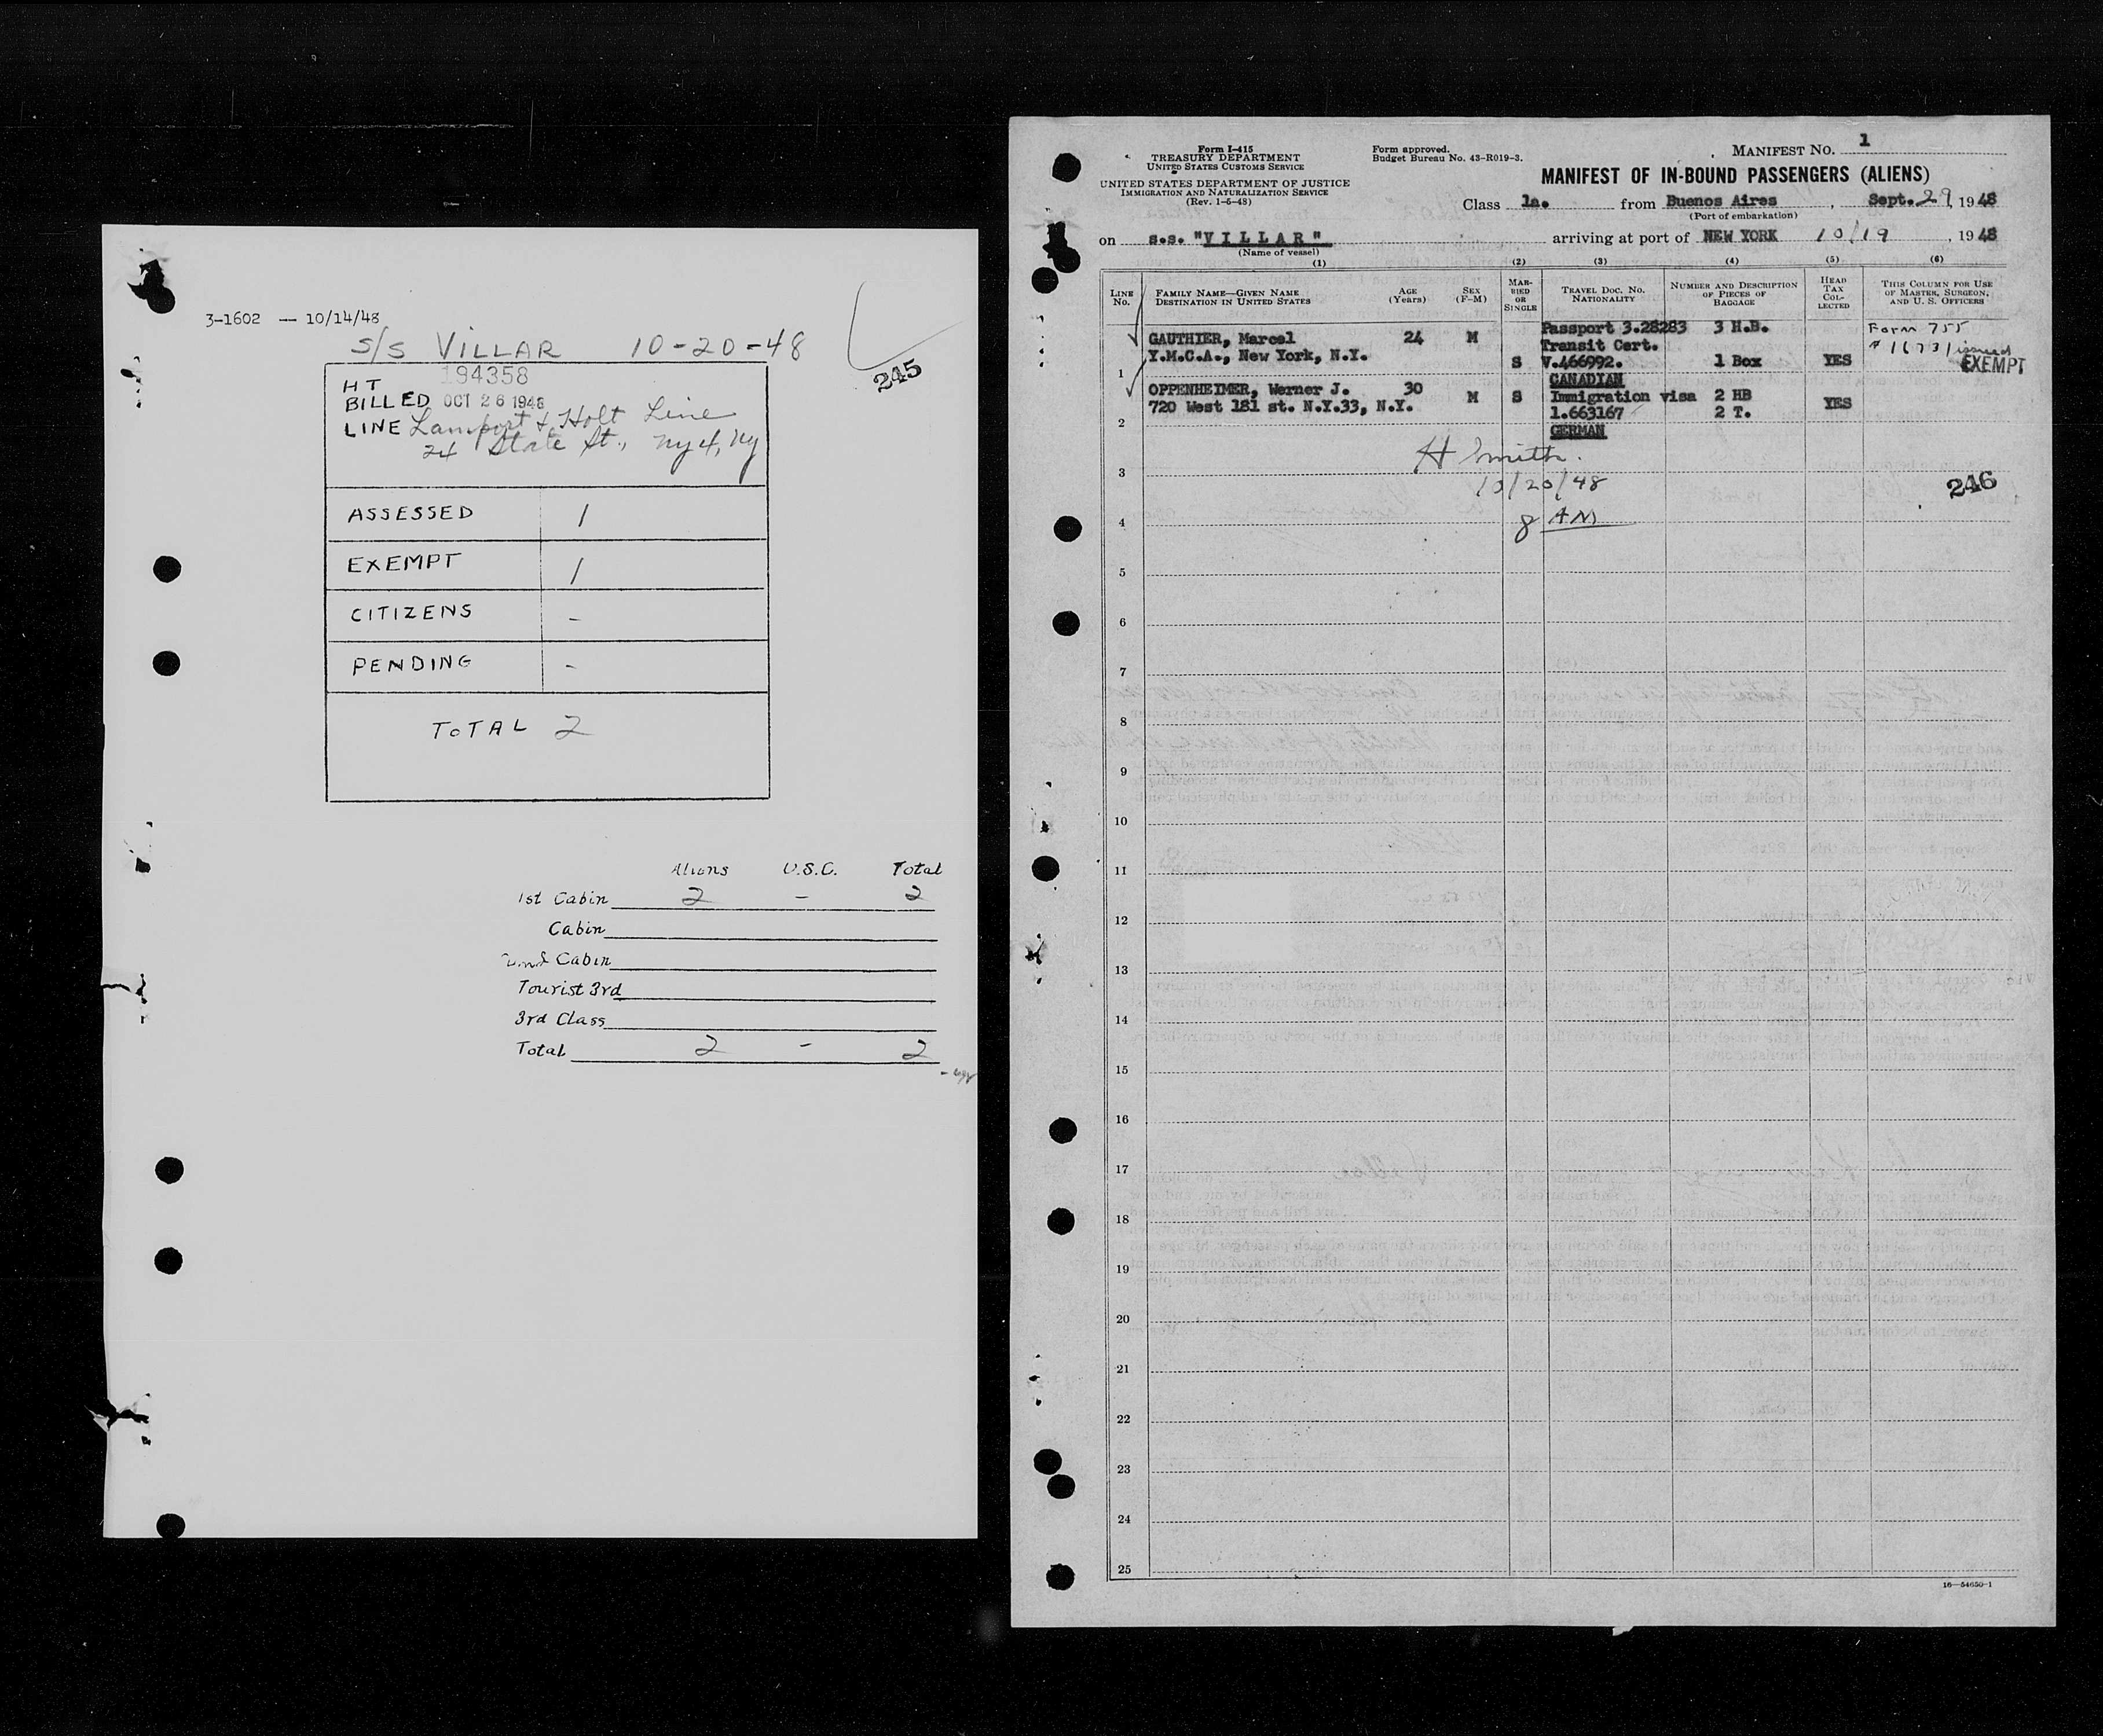 3-1602 — 10/14/48
S/S VILLAR 10-20-48
245
194358
HT
BILLED OCT 26 1948
LINE Lamport & Holt Line
24 State St., NY 4, NY
ASSESSED 1
EXEMPT 1
CITIZENS -
PENDING -
TOTAL 2
Aliens U.S.C. Total
1st Cabin 2 - 2
Cabin
Cabin
Tourist 3rd
3rd Class
Total 2 - 2
Form I-415
TREASURY DEPARTMENT
UNITED STATES CUSTOMS SERVICE
UNITED STATES DEPARTMENT OF JUSTICE
IMMIGRATION AND NATURALIZATION SERVICE
(Rev. 1-6-48)
Form approved.
Budget Bureau No. 43-R019-3.
MANIFEST NO. 1
MANIFEST OF IN-BOUND PASSENGERS (ALIENS)
Class 1a. from Buenos Aires, Sept. 29, 1948
(Port of embarkation)
on s.s. "VILLAR" arriving at port of NEW YORK 10/19, 1948
(Name of vessel)
(1) (2) (3) (4) (5) (6)
LINE NO.
FAMILY NAME—GIVEN NAME
DESTINATION IN UNITED STATES
AGE (Years)
SEX (F-M)
MARRIED OR SINGLE
TRAVEL DOC. NO.
NATIONALITY
NUMBER AND DESCRIPTION OF PIECES OF BAGGAGE
HEAD TAX COLLECTED
THIS COLUMN FOR USE OF MASTER, SURGEON, AND U. S. OFFICERS
GAUTHIER, Marcel 24 M Passport 3.28283 3 H.B. Form 755
Y.M.C.A., New York, N.Y. Transit Cert. # 16731 issued
1 S V.466992. 1 Box YES EXEMPT
CANADIAN
OPPENHEIMER, Werner J. 30 M S Immigration visa 2 HB YES
720 West 181 st. N.Y.33, N.Y. 1.663167 2 T.
2 GERMAN
H Smith.
3 10/20/48 246
4 8 AM
5
6
7
8
9
10
11
12
13
14
15
16
17
18
19
20
21
22
23
24
25
16—54650-1